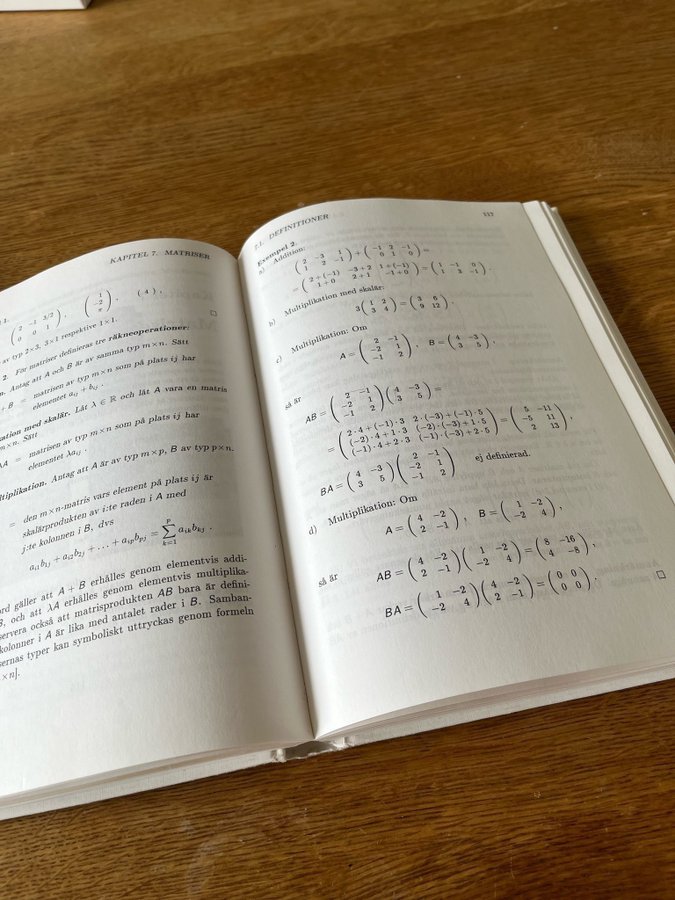 KAPITEL 7. MATRISER
1.
( 2 −1 3/2 ; 0 0 1 ), ( 1 ; −2 ; π ), ( 4 ),
av typ 2×3, 3×1 respektive 1×1.
□
2. För matriser definieras tre räkneoperationer:
n. Antag att A och B är av samma typ m×n. Sätt
+ B = matrisen av typ m×n som på plats ij har
elementet aᵢⱼ + bᵢⱼ .
kation med skalär. Låt λ ∈ ℝ och låt A vara en matris
m×n. Sätt
λA = matrisen av typ m×n som på plats ij har
elementet λaᵢⱼ .
ltiplikation. Antag att A är av typ m×p, B av typ p×n.
= den m×n-matris vars element på plats ij är
skalärprodukten av i:te raden i A med
j:te kolonnen i B, dvs
aᵢ₁b₁ⱼ + aᵢ₂b₂ⱼ + . . . + aᵢₚbₚⱼ = ∑ₖ₌₁ᵖ aᵢₖbₖⱼ .
ord gäller att A + B erhålles genom elementvis addi-
B, och att λA erhålles genom elementvis multiplika-
servera också att matrisprodukten AB bara är defini-
kolonner i A är lika med antalet rader i B. Samban-
sernas typer kan symboliskt uttryckas genom formeln
×n].
7.1. DEFINITIONER 117
Exempel 2.
a) Addition:
( 2 −3 1 ; 1 2 −1 ) + ( −1 2 −1 ; 0 1 0 ) =
= ( 2+(−1) −3+2 1+(−1) ; 1+0 2+1 −1+0 ) = ( 1 −1 0 ; 1 3 −1 ) .
b) Multiplikation med skalär:
3 ( 1 2 ; 3 4 ) = ( 3 6 ; 9 12 ) .
c) Multiplikation: Om
A = ( 2 −1 ; −2 1 ; −1 2 ) , B = ( 4 −3 ; 3 5 ) ,
så är
AB = ( 2 −1 ; −2 1 ; −1 2 ) ( 4 −3 ; 3 5 ) =
= ( 2·4+(−1)·3 2·(−3)+(−1)·5 ; (−2)·4+1·3 (−2)·(−3)+1·5 ; (−1)·4+2·3 (−1)·(−3)+2·5 ) = ( 5 −11 ; −5 11 ; 2 13 ) ,
BA = ( 4 −3 ; 3 5 ) ( 2 −1 ; −2 1 ; −1 2 ) ej definierad.
d) Multiplikation: Om
A = ( 4 −2 ; 2 −1 ) , B = ( 1 −2 ; −2 4 ) ,
så är
AB = ( 4 −2 ; 2 −1 ) ( 1 −2 ; −2 4 ) = ( 8 −16 ; 4 −8 ) ,
BA = ( 1 −2 ; −2 4 ) ( 4 −2 ; 2 −1 ) = ( 0 0 ; 0 0 ) .
□